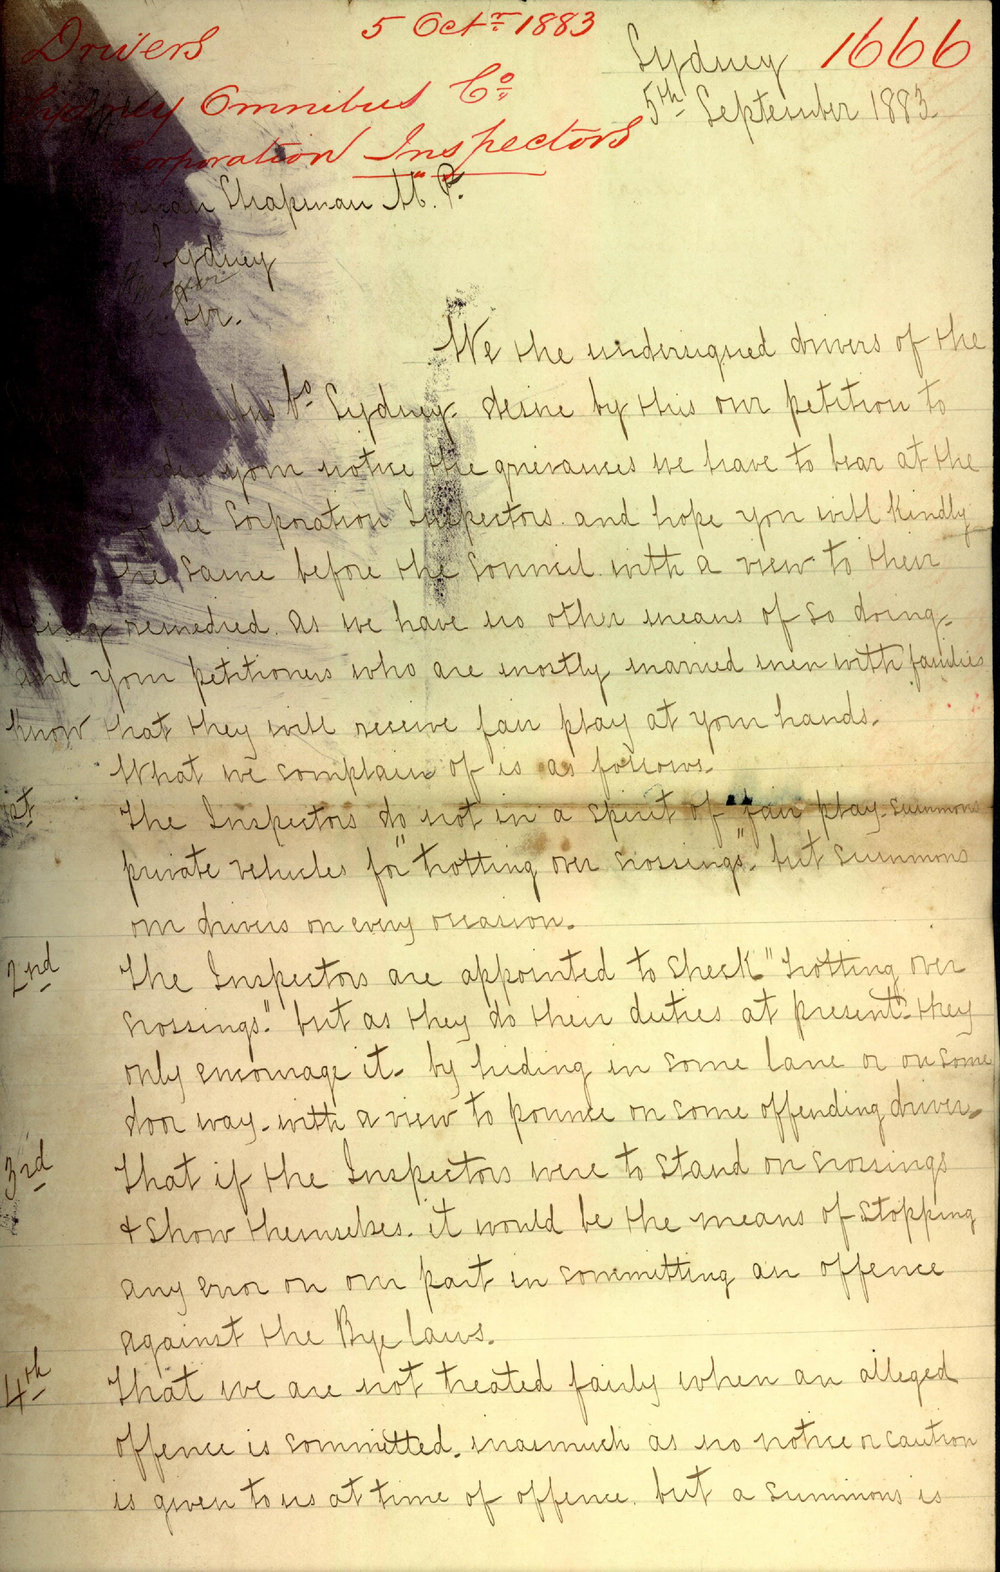 5 Octr 1883
Drivers
1666
Sydney Omnibus Co
Corporation Inspectors
Sydney
5th September 1883.
Chapman M.P.
Sydney
Sir.
We the undersigned drivers of the
Omnibus Co Sydney. desire by this our petition to
your notice the grievances we have to bear at the
the Corporation Inspectors. and hope you will kindly
the same before the Council. with a view to their
being remedied. as we have no other means of so doing.
and your petitioners who are mostly married men with families
know that they will receive fair play at your hands.
What we complain of is as follows.
1st The Inspectors do not in a spirit of "fair play summons
private vehicles for "trotting over crossings". but summons
our drivers on every occasion.
2nd The Inspectors are appointed to check "trotting over
crossings". but as they do their duties at present. they
only encourage it. by hiding in some lane or on some
door way. with a view to pounce on some offending driver.
3rd That if the Inspectors were to stand on crossings
& show themselves. it would be the means of stopping
any error on our part in committing an offence
against the Bye laws.
4th That we are not treated fairly when an alleged
offence is committed. inasmuch as no notice or caution
is given to us at time of offence. but a summons is